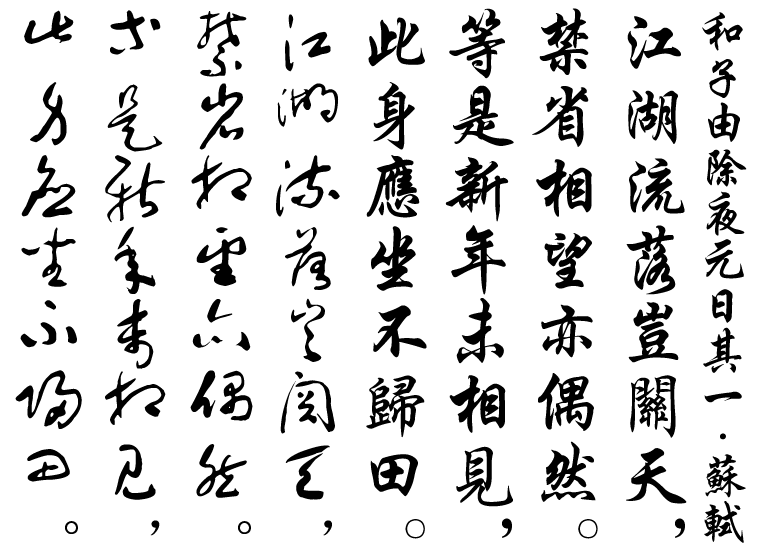 和子由除夜元日其一·蘇軾
江湖流落豈關天，
禁省相望亦偶然。
等是新年未相見，
此身應坐不歸田。
江湖流落豈關天，
禁省相望亦偶然。
等是新年未相見，
此身應坐不歸田。